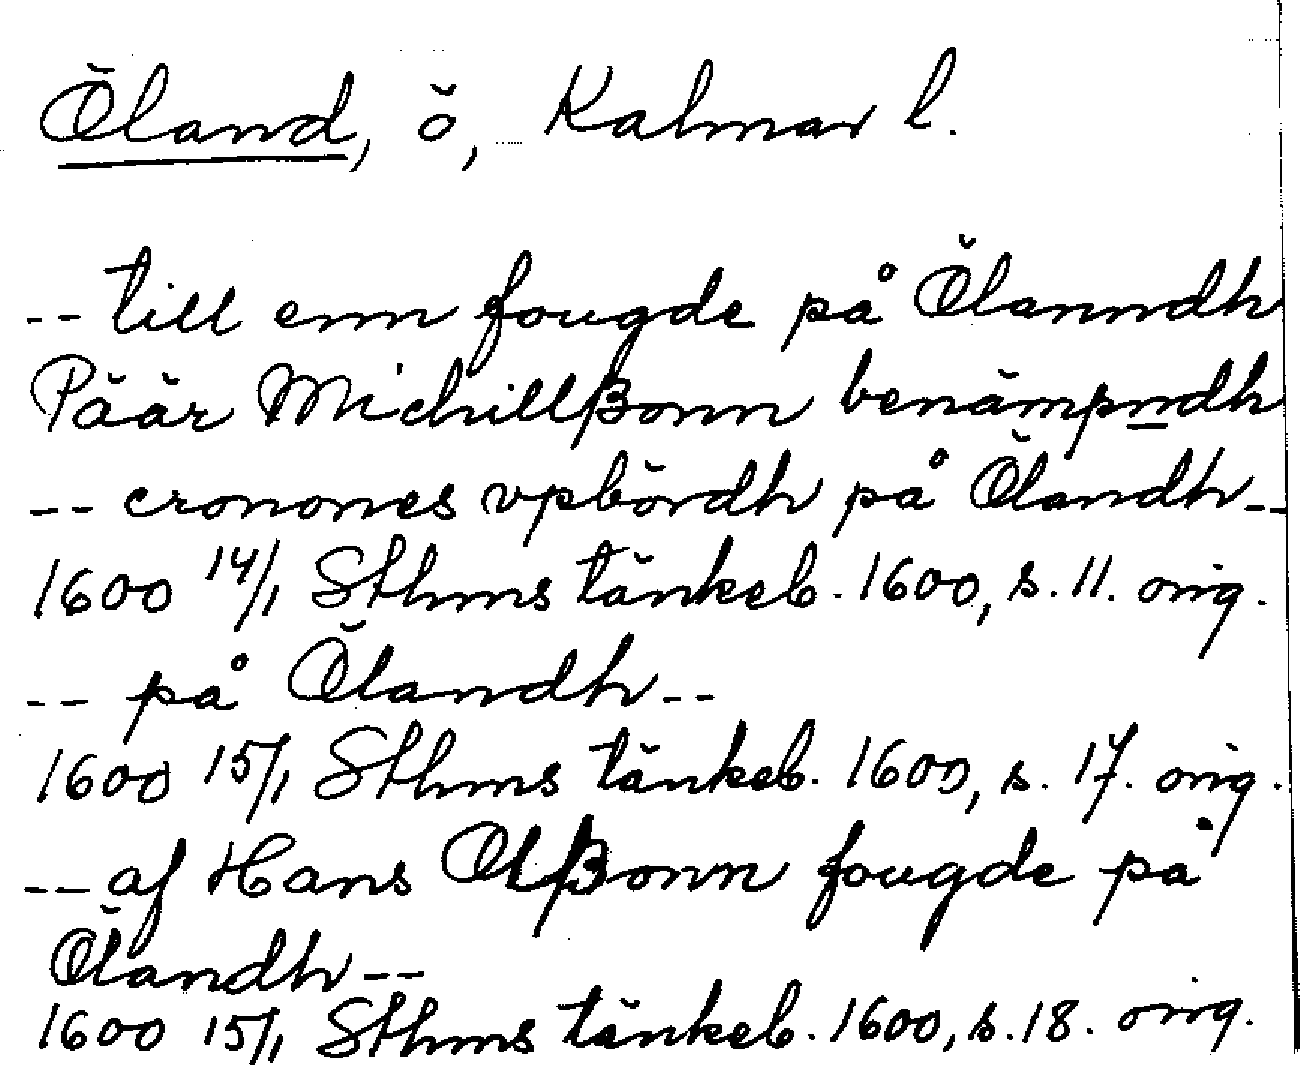 Öland, ö, Kalmar l.
-- till enn fougde på Ölanndh
Päär Michillßonn benämpndh
-- cronones vpbördh på Ölandh --
1600 14/1 Sthms tänkeb. 1600, s. 11. orig.
-- på Ölandh --
1600 15/1 Sthms tänkeb. 1600, s. 17. orig.
-- af Hans Olßonn fougde på
Ölandh --
1600 15/1 Sthms tänkeb. 1600, s. 18. orig.